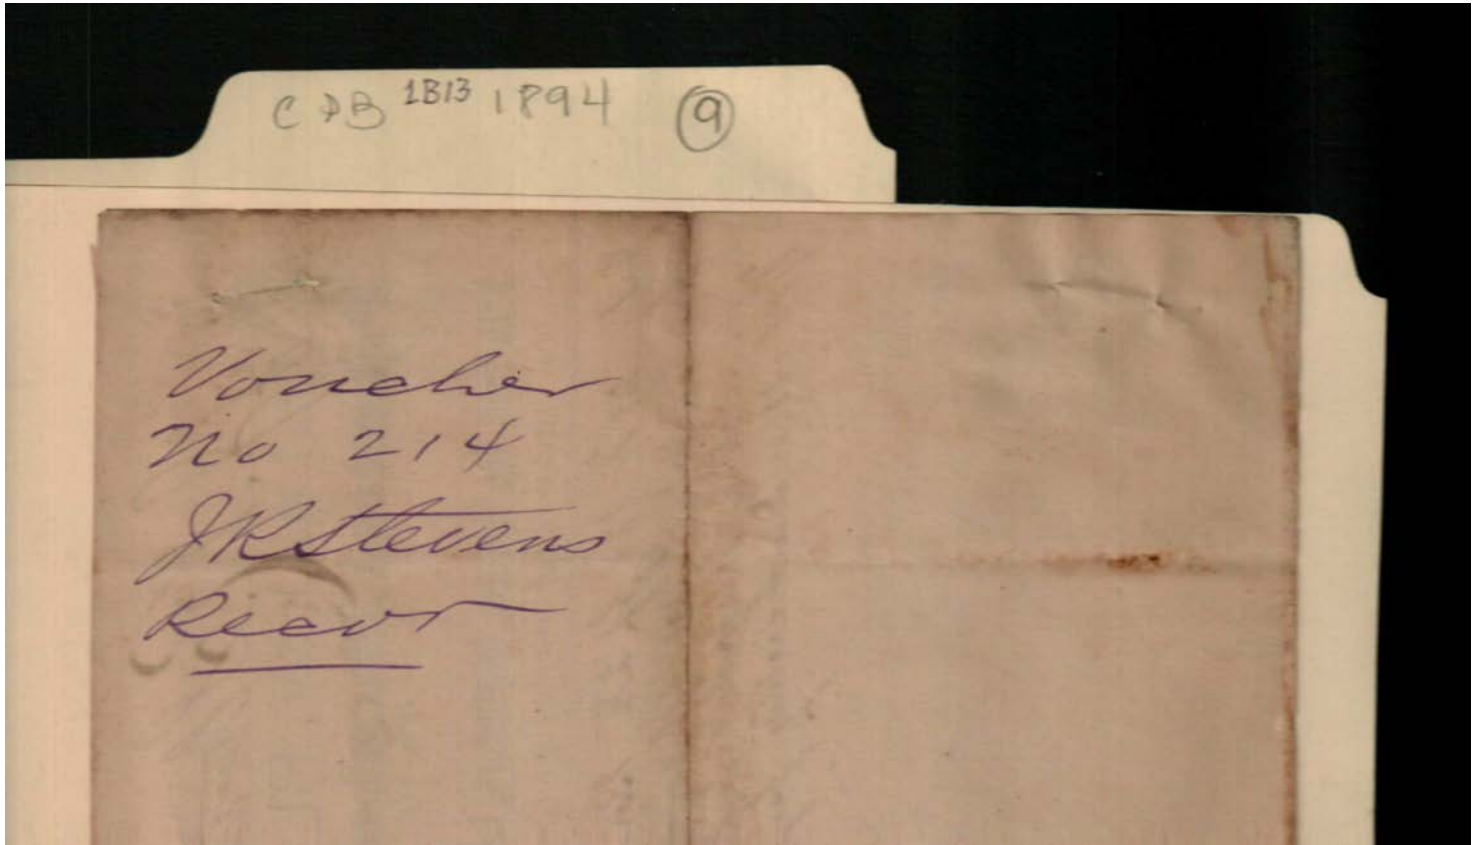 CDB 1B13 1894 9
Voucher
No 214
JR Stevens
Recvr